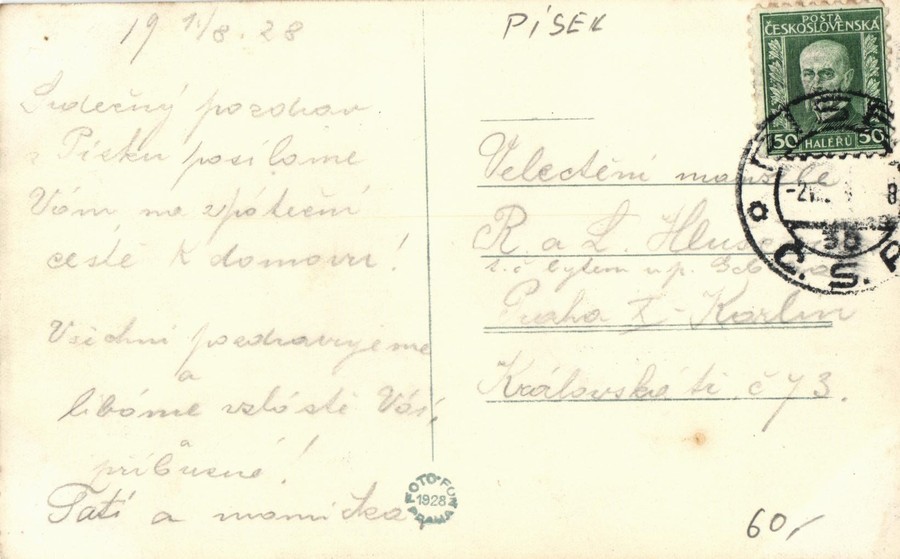 19 1./8. 28
Srdečný pozdrav
z Písku posílame
Vám na zpáteční
cestě k domovu!
Všichni pozdravujeme
a
libáme vzláště Vás,
příbuzné!
Tatí a mamička
FOTO-FON
1928
PRAHA
PÍSEK
POŠTA
ČESKOSLOVENSKÁ
50 HALÉŘŮ 50
Velectění manželé
R. a L.
t. č. bytem u p.
Praha X - Karlín
Královská tř. č 73.
-2
8
3b
Č.S.P.
60,-